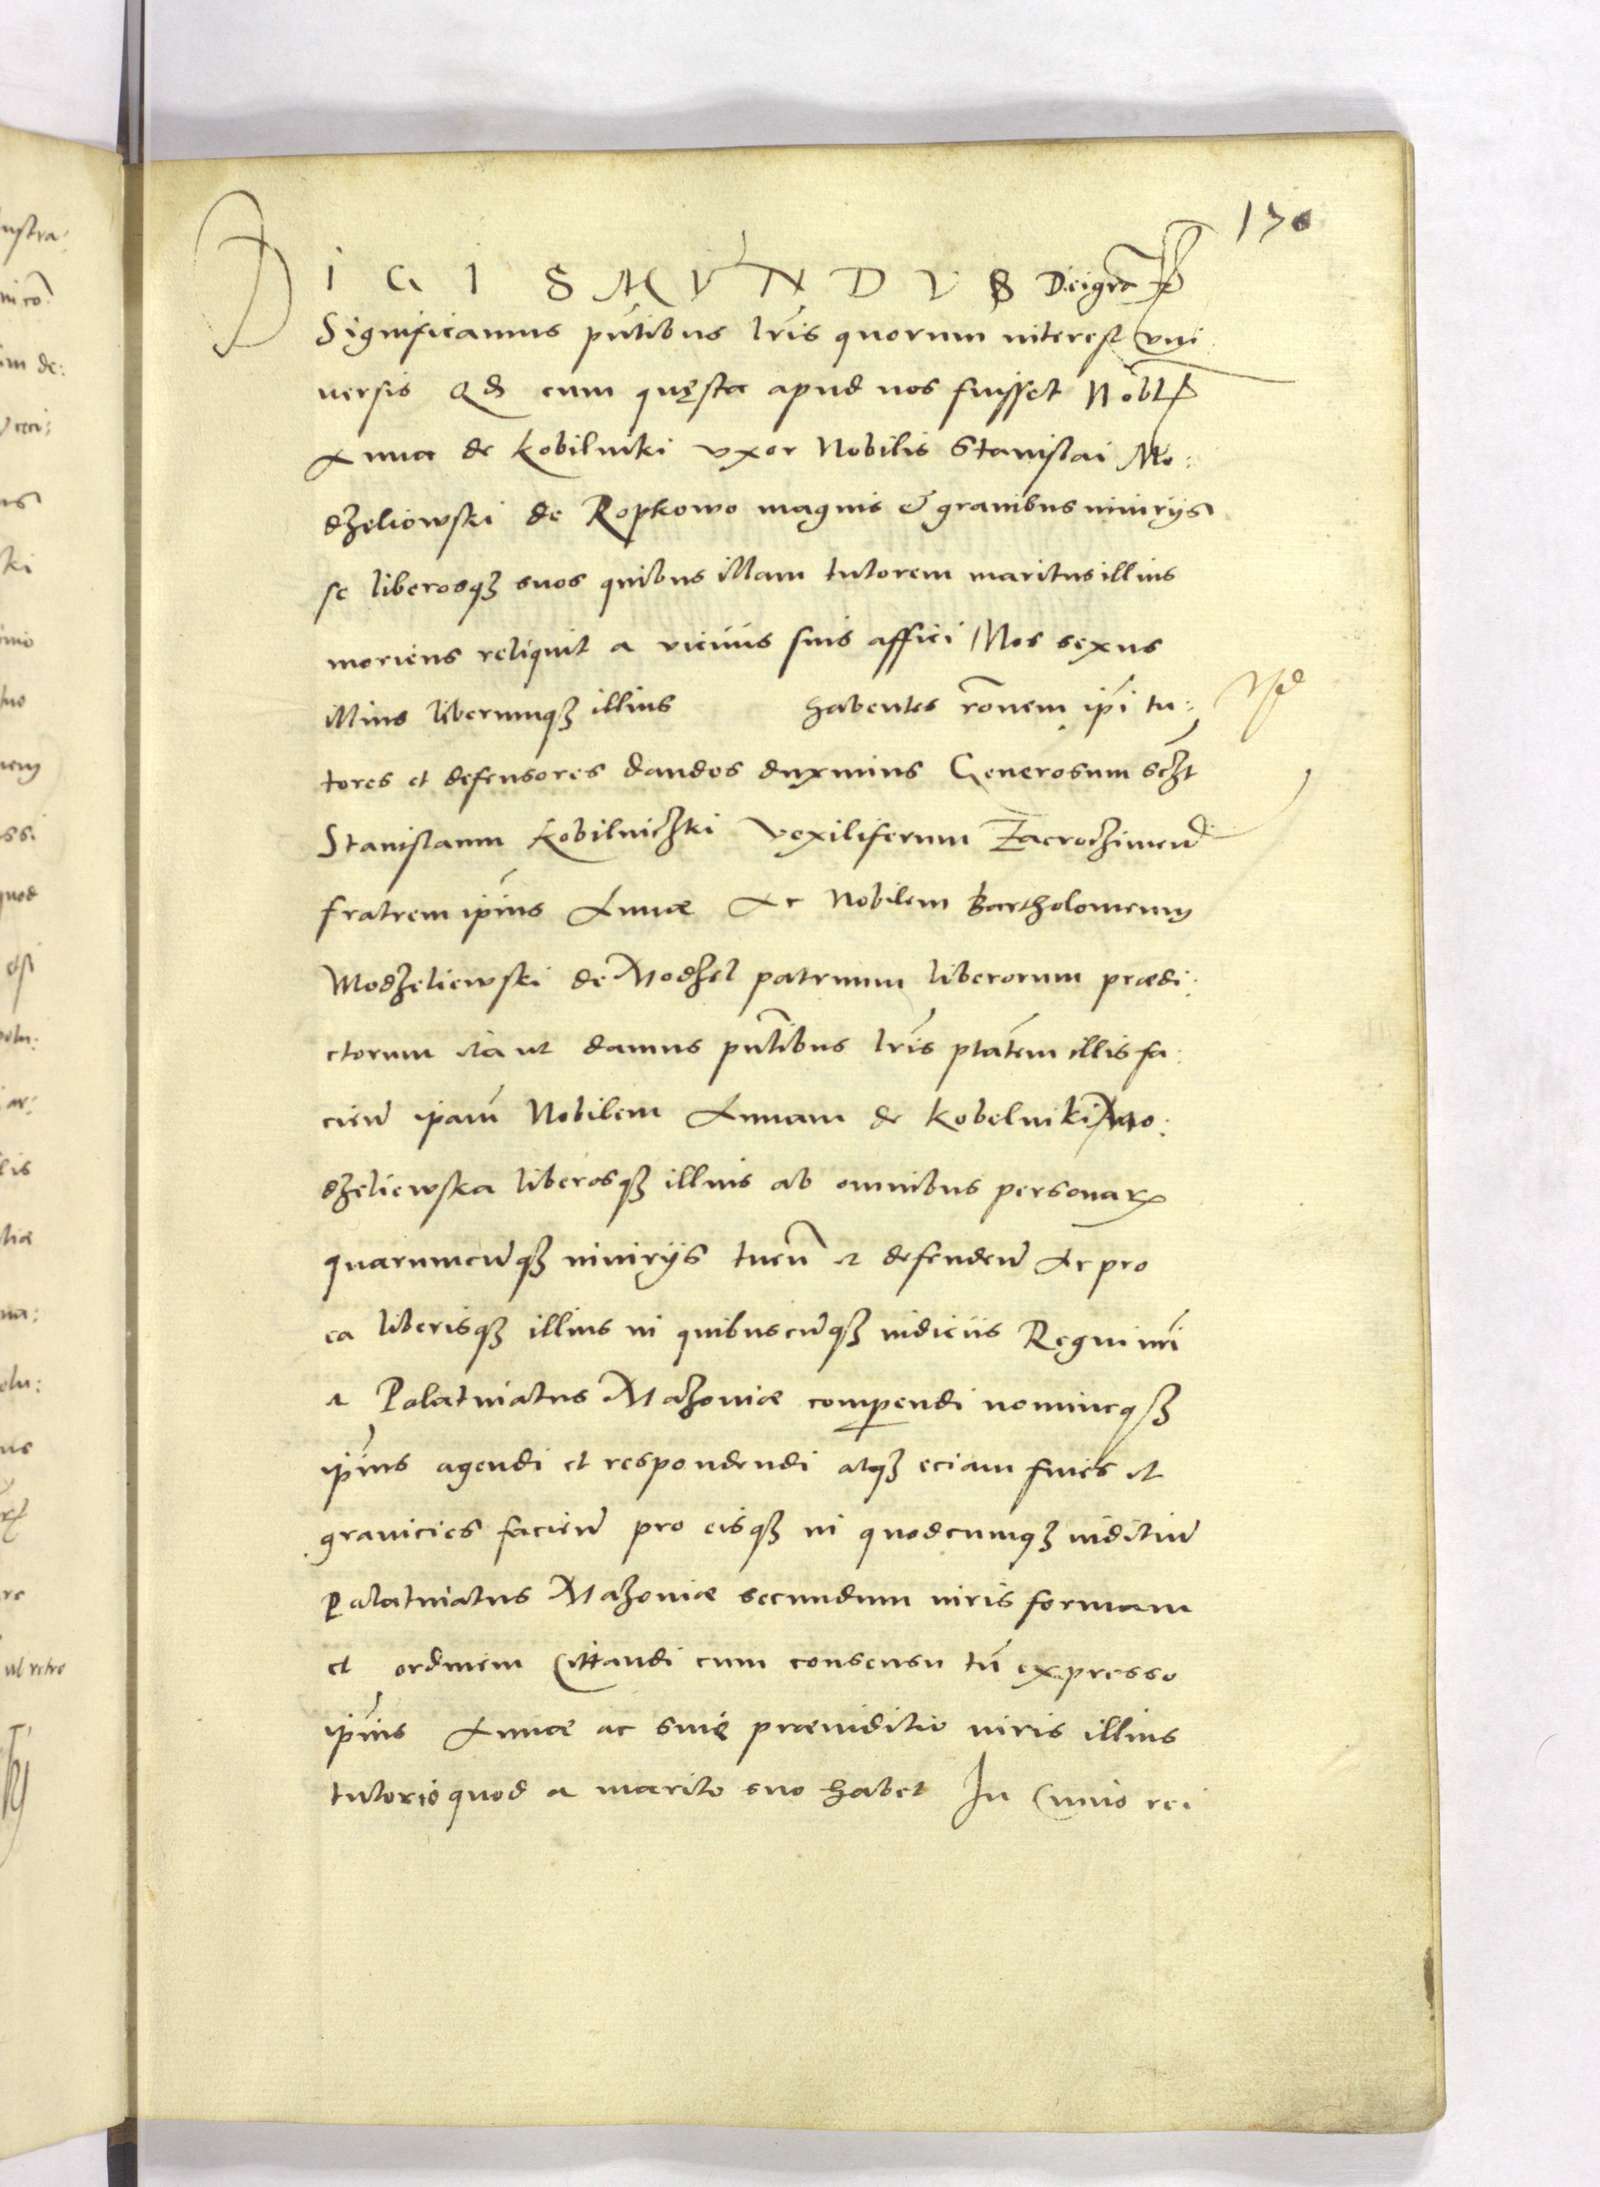 170
SIGISMVNDVS Dei gra
Significamus pntibus lris quorum interest vni
uersis Qd cum quęsta apud nos fuisset Nobl
Anna de Kobilniki vxor Nobilis Stanislai Mo:
dzeliowski de Ropkowo magnis & grauibus iniuriis
se liberosqz suos quibus illam tutorem maritus illius
moriens reliquit a vicinis suis affici Nos sexus
illius liberumqz illius habentes ronem ipi tu:
tores et defensores dandos duximus Generosum sczt
Stanislaum Kobilniczki Vexiliferum Zacroczimen
fratrem ipius Annæ Ac Nobilem Bartholomeum
Modzeliewski de Modzel patruum liberorum prædi:
ctorum ita ut damus pntibus lris ptatem illis fa:
cien ipam Nobilem Annam de Kobelniki Mo:
dzeliewska liberosqz illius ab omnibus personarum
quarumcunqz iniuriis tuen et defenden Ac pro
ea liberisqz illius in quibuscunqz iudiciis Regni nri
et Palatinatus Mazoviæ comparendi nomineqz
ipius agendi et respondendi atqz eciam fines et
granicies facien pro eisqz in quodcumqz iuditium
Palatinatus Mazoviæ secundum iuris formam
et ordinem Cittandi cum consensu tn expresso
ipius Annæ ac sine præiuditio iuris illius
tutorio quod a marito suo habet In Cuius rei